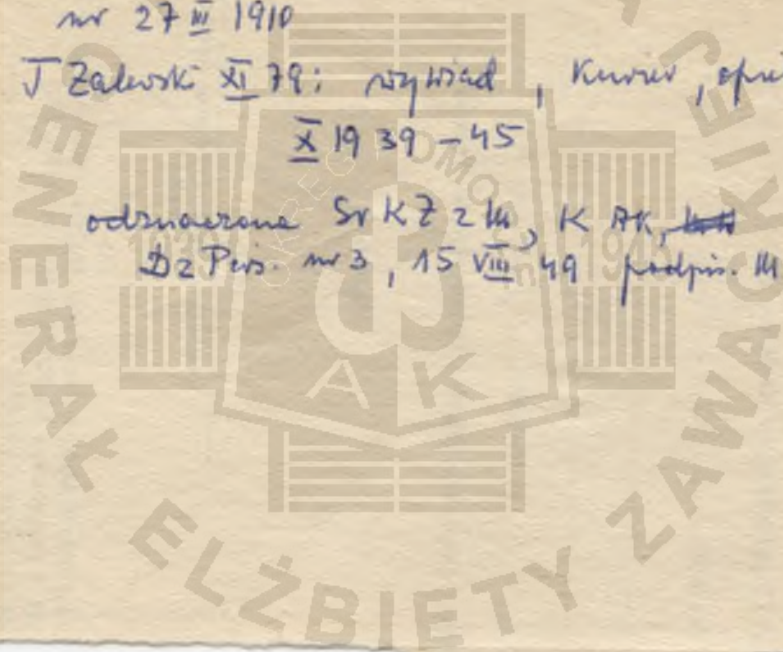 ur 27 III 1910
J Zalewski XI 79: wywiad, Kurier,
X 1939-45
odznaczona Sr K Z z M, K AK,
Dz Pers. nr 3, 15 VIII 49 podpis. M
GENERAŁ ELŻBIETY ZAWACKIEJ
OKRĘG POMORZE
1939 1945
AK